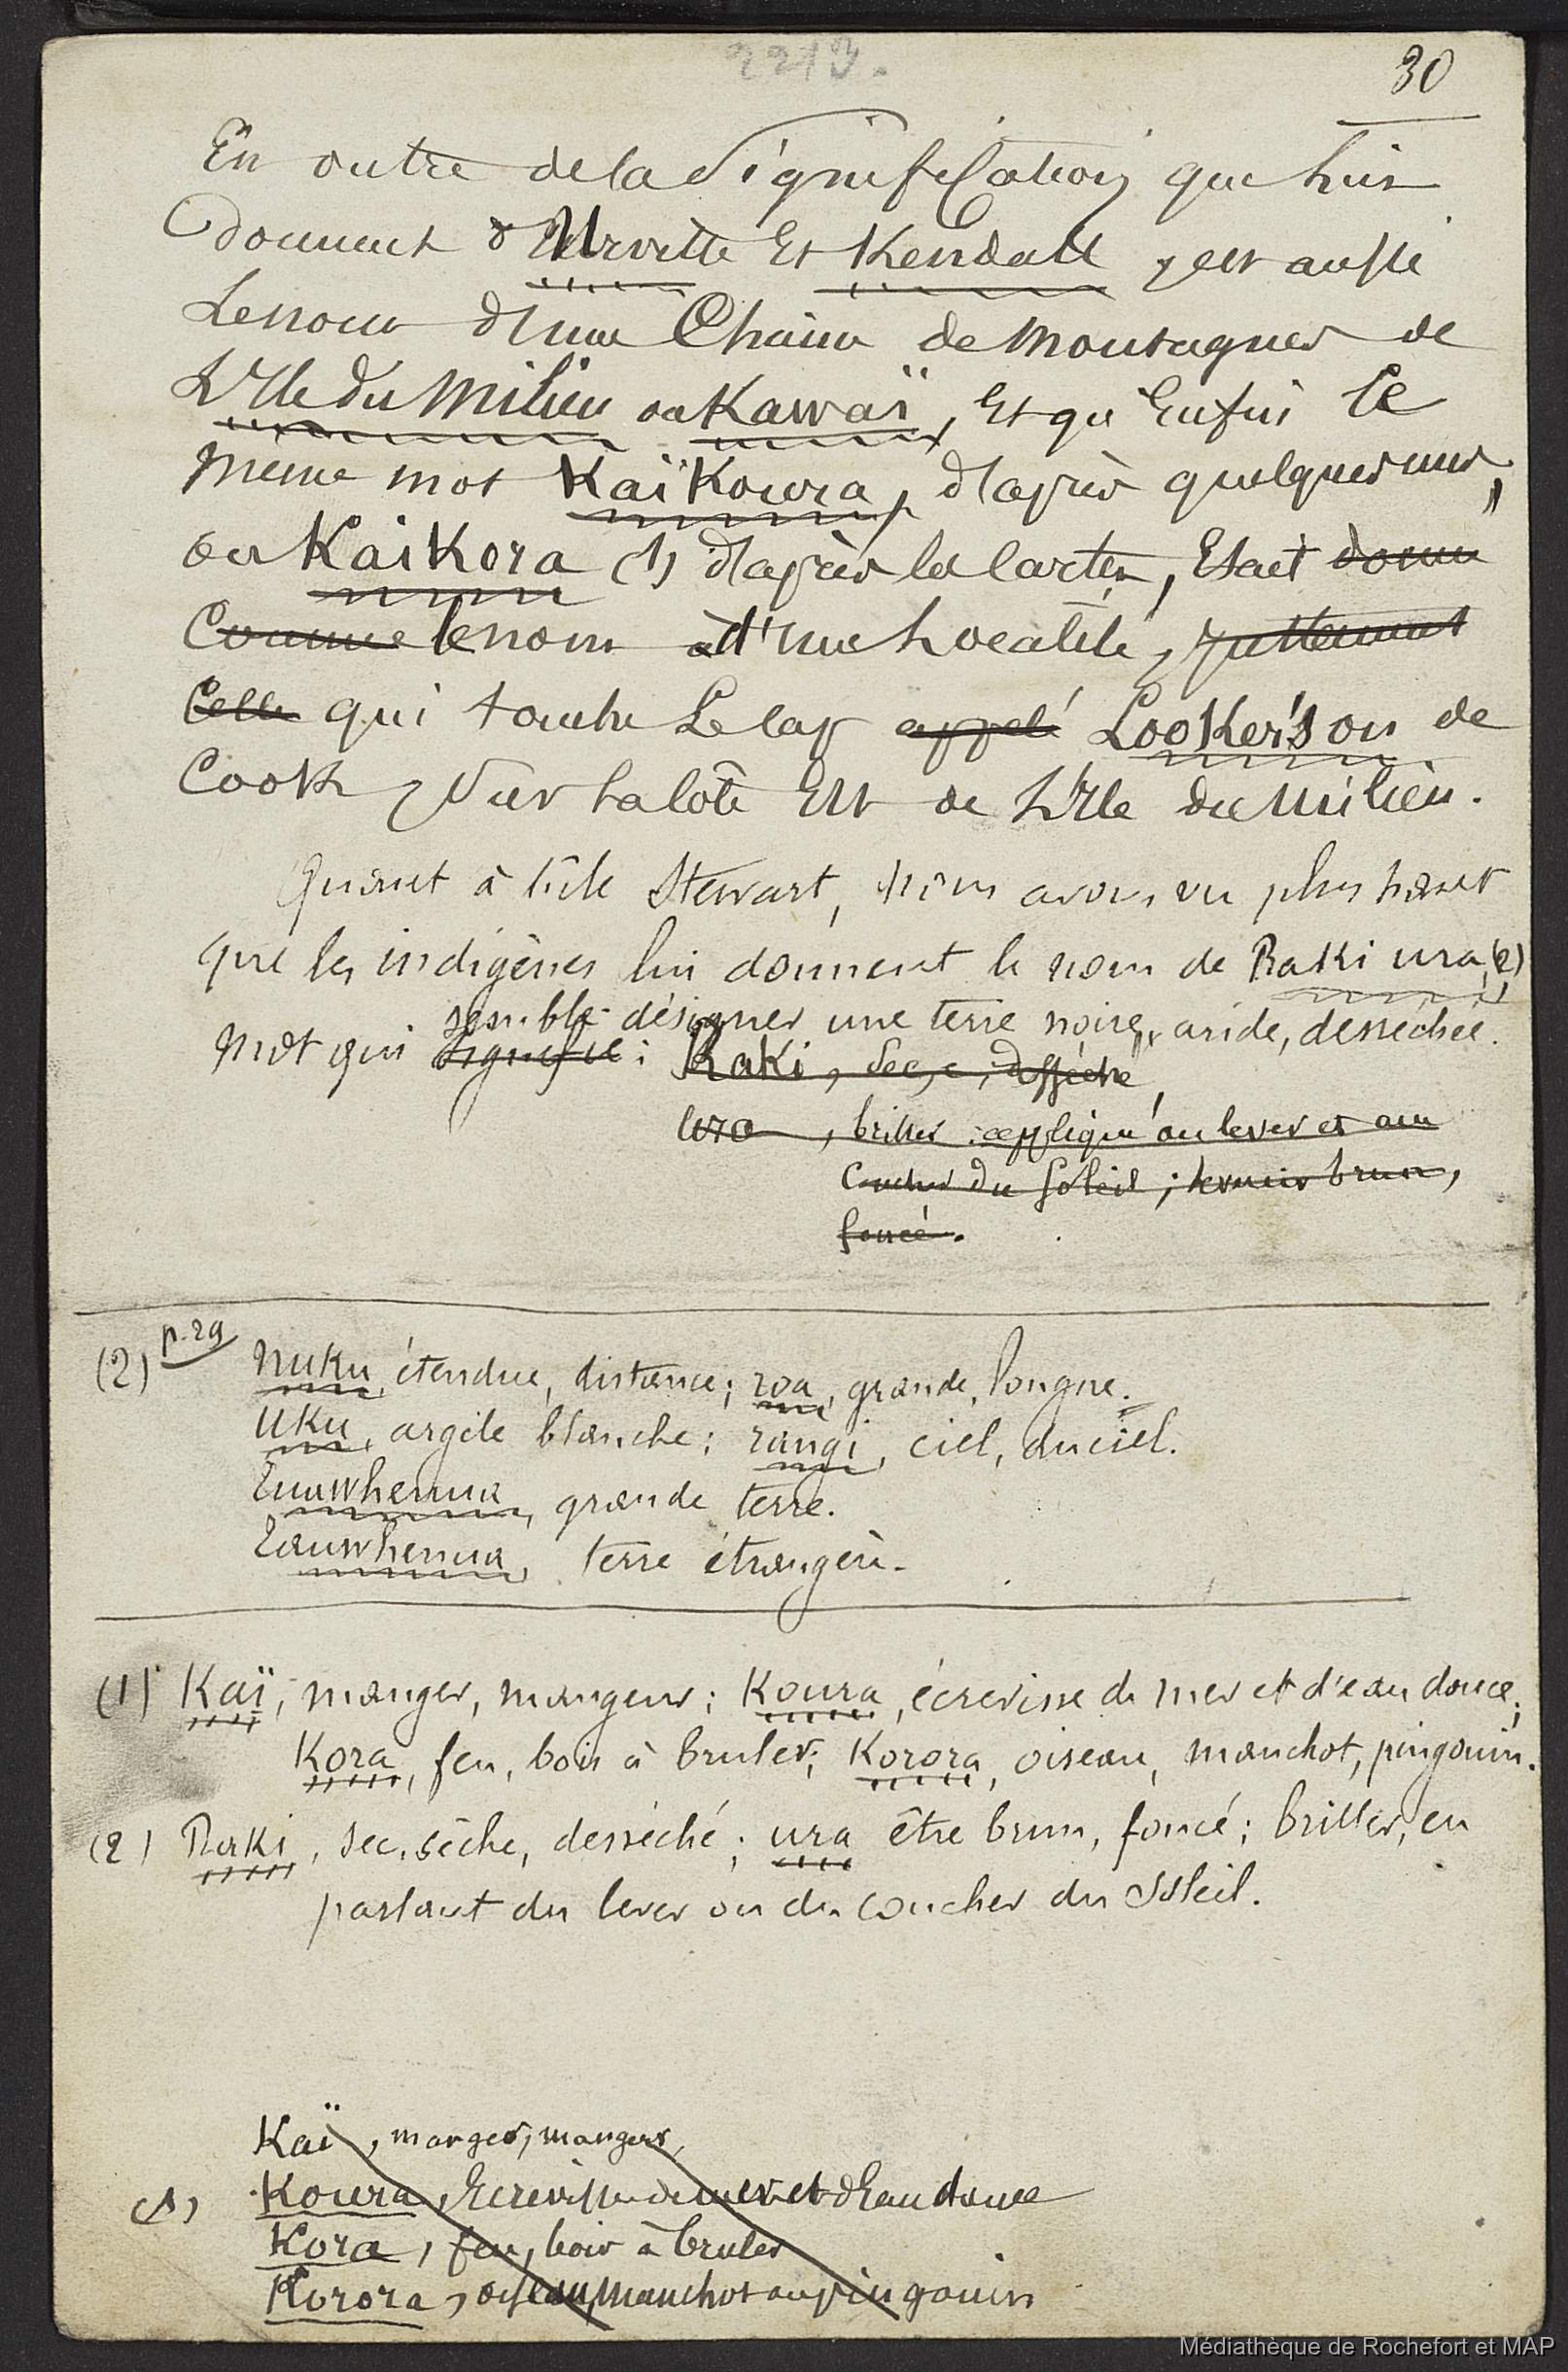 2213.
30
En outre de la signification que lui
donnent d'Urville et Kendall, est aussi
le nom d'une Chaîne de montagnes de
L'Ile du Milieu ou Kawaï, et qu'enfin le
même mot KaïKoura, d'après quelques uns,
ou KaiKora (1) d'après les cartes, Etait donc
Comme le nom d'une localité, justement
Celle qui touche Le cap appelé Looker's on de
Cook, sur la côte Est de L'Ile du Milieu.
Quant à l'île Stewart, nous avons vu plus haut
que les indigènes lui donnent le nom de Raki ura (2)
semble désigner une terre noire, aride, desséchée.
mot qui signifie : Raki, sec, desséché,
Ura, briller : appliqué au lever et au
coucher du soleil ; brun,
foncé.
(2) p. 29 Nuku, étendue, distance ; roa, grande, longue.
Uku, argile blanche ; rangi, ciel, du ciel.
, grande terre.
, terre étrangère.
(1) Kaï, manger, mangeur ; Koura, écrevisse de mer et d'eau douce ;
Kora, feu, bois à bruler ; Korora, oiseau, manchot, pingouin.
(2) Raki, sec, sèche, desséché ; ura être brun, foncé ; briller, en
parlant du lever ou du coucher du Soleil.
Kaï, manger, mangeur,
(1) Koura, Ecrevisse de mer et d'Eau douce
Kora, feu, bois à bruler
Korora, oiseau, manchot ou pingouin
Médiathèque de Rochefort et MAP